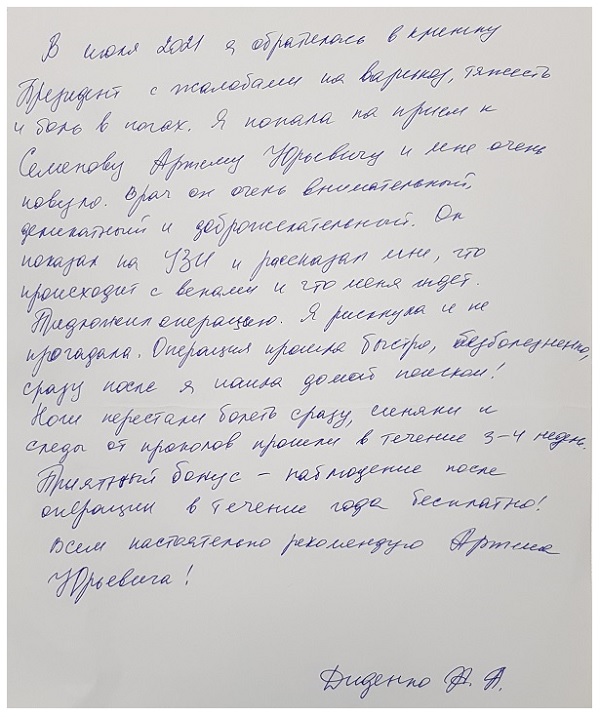 В июле 2021 я обратилась в клинику
Президент с жалобами на варикоз, тяжесть
и боль в ногах. Я попала на прием к
Семенову Артему Юрьевичу и мне очень
повезло. Врач он очень внимательный,
деликатный и доброжелательный. Он
показал на УЗИ и рассказал мне, что
происходит с венами и что меня ждет.
Предложил операцию. Я рискнула и не
прогадала. Операция прошла быстро, безболезненно,
сразу после я пошла домой пешком!
Ноги перестали болеть сразу, синяки и
следы от проколов прошли в течение 3-4 недель.
Приятный бонус – наблюдение после
операции в течение года бесплатно!
Всем настоятельно рекомендую Артема
Юрьевича!
Диденко А. А.